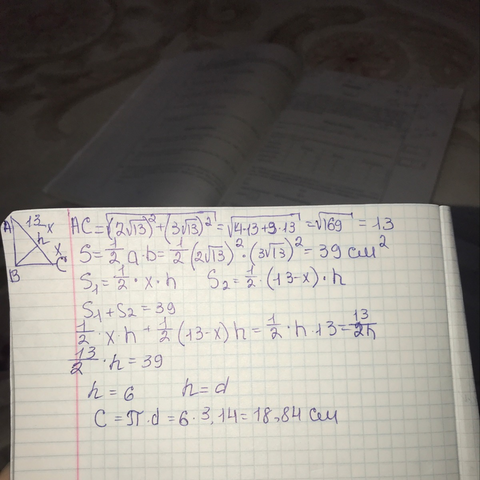 A 13-x
h
x
B C
AC=√(2√13)²+(3√13)²=√4·13+9·13=√169=13
S=1/2 a·b=1/2(2√13)²·(3√13)²=39 см²
S₁=1/2·x·h S₂=1/2·(13-x)·h
S₁+S₂=39
1/2·x·h+1/2(13-x)h=1/2·h·13=13/2h
13/2·h=39
h=6 h=d
C=π·d=6·3,14=18,84 см